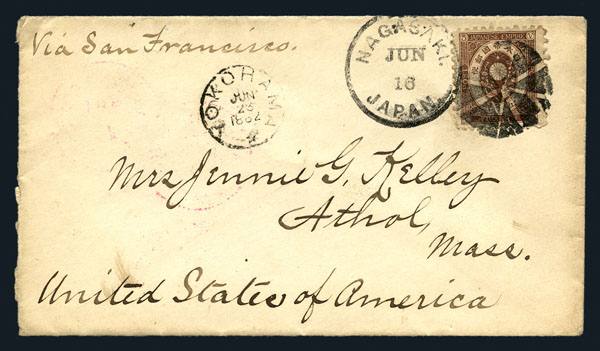 Via San Francisco.
NAGASAKI.
JUN
16
JAPAN.
JAPANESE EMPIRE
YOKOHAMA
JUN
23
1882
Mrs Jennie G. Kelley
Athol,
Mass.
United States of America